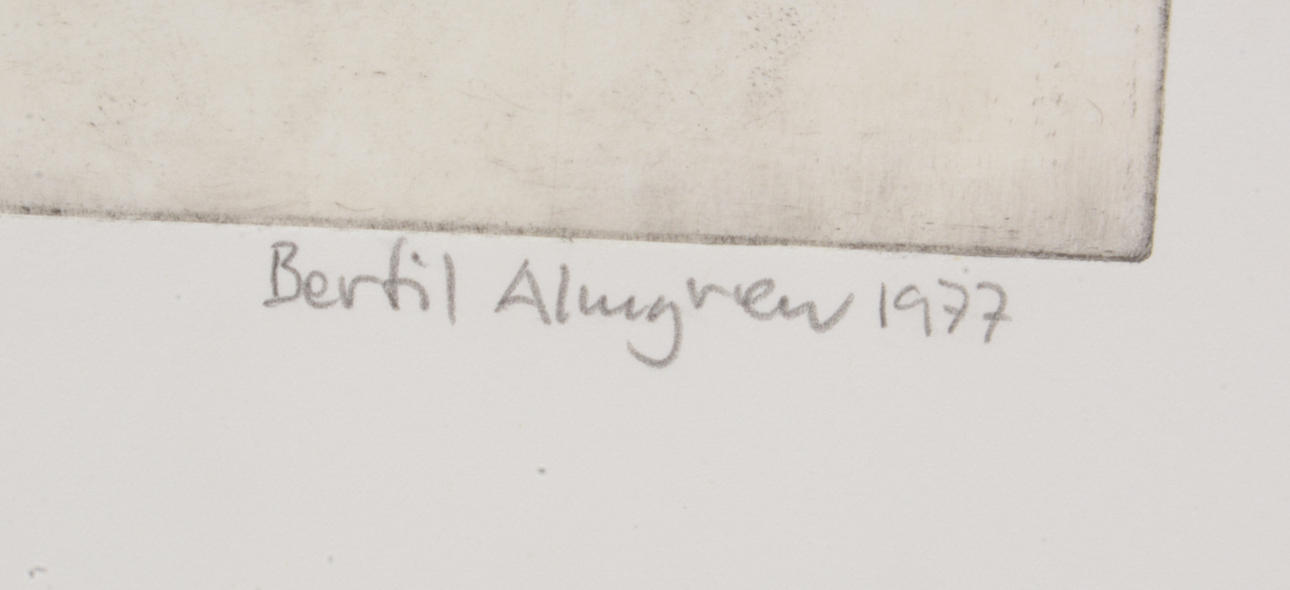 Bertil Almgren 1977